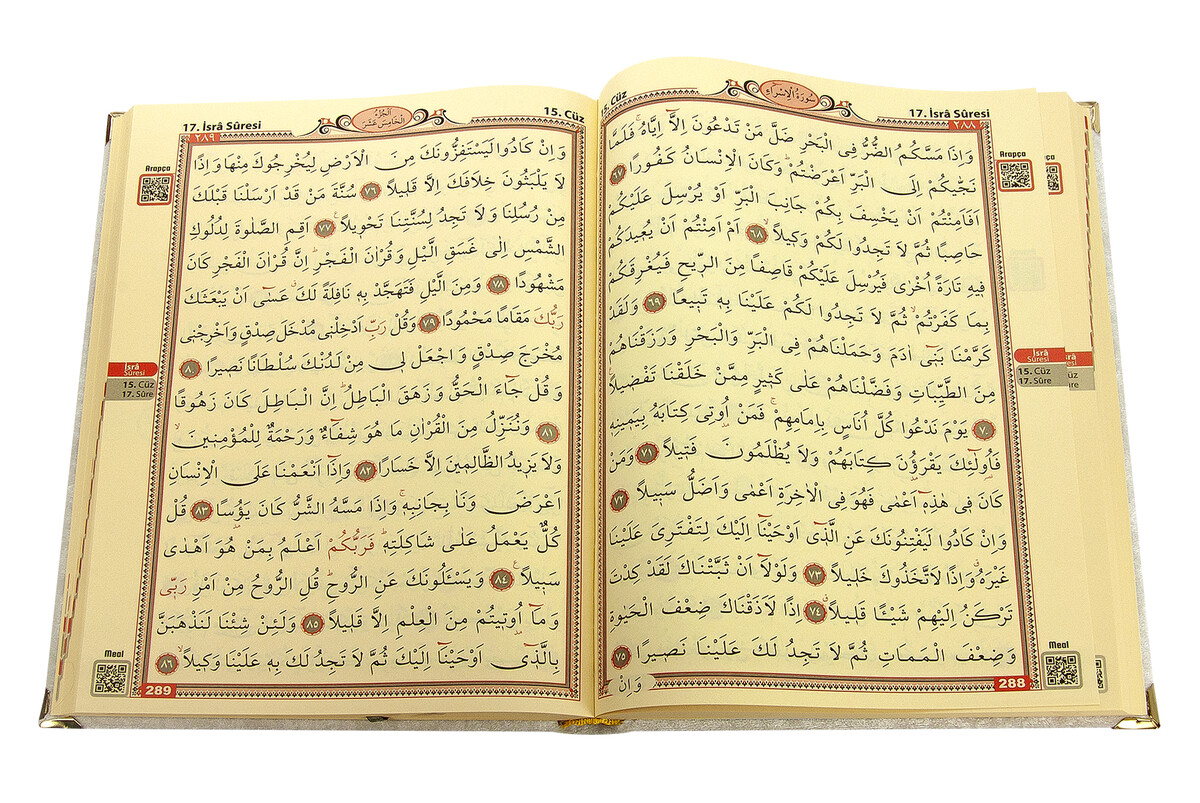 17. İsrâ Sûresi
سُورَةُ الْاِسْرَاءِ
15. Cüz
٢٨٨
وَاِذَا مَسَّكُمُ الضُّرُّ فِى الْبَحْرِ ضَلَّ مَنْ تَدْعُونَ اِلَّٓا اِيَّاهُۚ فَلَمَّا
نَجّٰيكُمْ اِلَى الْبَرِّ اَعْرَضْتُمْۜ وَكَانَ الْاِنْسَانُ كَفُورًا ﴿٦٧﴾
اَفَاَمِنْتُمْ اَنْ يَخْسِفَ بِكُمْ جَانِبَ الْبَرِّ اَوْ يُرْسِلَ عَلَيْكُمْ
حَاصِبًا ثُمَّ لَا تَجِدُوا لَكُمْ وَكٖيلًاۙ ﴿٦٨﴾ اَمْ اَمِنْتُمْ اَنْ يُعٖيدَكُمْ
فٖيهِ تَارَةً اُخْرٰى فَيُرْسِلَ عَلَيْكُمْ قَاصِفًا مِنَ الرّٖيحِ فَيُغْرِقَكُمْ
بِمَا كَفَرْتُمْۙ ثُمَّ لَا تَجِدُوا لَكُمْ عَلَيْنَا بِهٖ تَبٖيعًا ﴿٦٩﴾ وَلَقَدْ
كَرَّمْنَا بَنٖٓى اٰدَمَ وَحَمَلْنَاهُمْ فِى الْبَرِّ وَالْبَحْرِ وَرَزَقْنَاهُمْ
مِنَ الطَّيِّبَاتِ وَفَضَّلْنَاهُمْ عَلٰى كَثٖيرٍ مِمَّنْ خَلَقْنَا تَفْضٖيلًا
﴿٧٠﴾ يَوْمَ نَدْعُوا كُلَّ اُنَاسٍ بِاِمَامِهِمْۚ فَمَنْ اُو۫تِىَ كِتَابَهُ بِيَمٖينِهٖ
فَاُو۬لٰٓئِكَ يَقْرَؤُ۫نَ كِتَابَهُمْ وَلَا يُظْلَمُونَ فَتٖيلًا ﴿٧١﴾ وَمَنْ
كَانَ فٖى هٰذِهٖٓ اَعْمٰى فَهُوَ فِى الْاٰخِرَةِ اَعْمٰى وَاَضَلُّ سَبٖيلًا ﴿٧٢﴾
وَاِنْ كَادُوا لَيَفْتِنُونَكَ عَنِ الَّذٖٓى اَوْحَيْنَٓا اِلَيْكَ لِتَفْتَرِىَ عَلَيْنَا
غَيْرَهُۗ وَاِذًا لَاتَّخَذُوكَ خَلٖيلًا ﴿٧٣﴾ وَلَوْلَٓا اَنْ ثَبَّتْنَاكَ لَقَدْ كِدْتَ
تَرْكَنُ اِلَيْهِمْ شَيْـًٔا قَلٖيلًاۗ ﴿٧٤﴾ اِذًا لَاَذَقْنَاكَ ضِعْفَ الْحَيٰوةِ
وَضِعْفَ الْمَمَاتِ ثُمَّ لَا تَجِدُ لَكَ عَلَيْنَا نَصٖيرًا ﴿٧٥﴾
وَاِنْ
288
Arapça
İsrâ
Sûresi
15. Cüz
17. Sûre
Meal
17. İsrâ Sûresi
اَلْجُزْءُ الْخَامِسَ عَشَرَ
15. Cüz
٢٨٩
وَاِنْ كَادُوا لَيَسْتَفِزُّونَكَ مِنَ الْاَرْضِ لِيُخْرِجُوكَ مِنْهَا وَاِذًا
لَا يَلْبَثُونَ خِلَافَكَ اِلَّا قَلٖيلًا ﴿٧٦﴾ سُنَّةَ مَنْ قَدْ اَرْسَلْنَا قَبْلَكَ
مِنْ رُسُلِنَا وَلَا تَجِدُ لِسُنَّتِنَا تَحْوٖيلًا ﴿٧٧﴾ اَقِمِ الصَّلٰوةَ لِدُلُوكِ
الشَّمْسِ اِلٰى غَسَقِ الَّيْلِ وَقُرْاٰنَ الْفَجْرِۜ اِنَّ قُرْاٰنَ الْفَجْرِ كَانَ
مَشْهُودًا ﴿٧٨﴾ وَمِنَ الَّيْلِ فَتَهَجَّدْ بِهٖ نَافِلَةً لَكَۗ عَسٰٓى اَنْ يَبْعَثَكَ
رَبُّكَ مَقَامًا مَحْمُودًا ﴿٧٩﴾ وَقُلْ رَبِّ اَدْخِلْنٖى مُدْخَلَ صِدْقٍ وَاَخْرِجْنٖى
مُخْرَجَ صِدْقٍ وَاجْعَلْ لٖى مِنْ لَدُنْكَ سُلْطَانًا نَصٖيرًا ﴿٨٠﴾
وَقُلْ جَٓاءَ الْحَقُّ وَزَهَقَ الْبَاطِلُۜ اِنَّ الْبَاطِلَ كَانَ زَهُوقًا
﴿٨١﴾ وَنُنَزِّلُ مِنَ الْقُرْاٰنِ مَا هُوَ شِفَٓاءٌ وَرَحْمَةٌ لِلْمُؤْمِنٖينَۙ
وَلَا يَزٖيدُ الظَّالِمٖينَ اِلَّا خَسَارًا ﴿٨٢﴾ وَاِذَٓا اَنْعَمْنَا عَلَى الْاِنْسَانِ
اَعْرَضَ وَنَاٰ بِجَانِبِهٖۚ وَاِذَا مَسَّهُ الشَّرُّ كَانَ يَؤُ۫سًا ﴿٨٣﴾ قُلْ
كُلٌّ يَعْمَلُ عَلٰى شَاكِلَتِهٖۜ فَرَبُّكُمْ اَعْلَمُ بِمَنْ هُوَ اَهْدٰى
سَبٖيلًا ﴿٨٤﴾ وَيَسْـَٔلُونَكَ عَنِ الرُّوحِۜ قُلِ الرُّوحُ مِنْ اَمْرِ رَبّٖى
وَمَٓا اُو۫تٖيتُمْ مِنَ الْعِلْمِ اِلَّا قَلٖيلًا ﴿٨٥﴾ وَلَئِنْ شِئْنَا لَنَذْهَبَنَّ
بِالَّذٖٓى اَوْحَيْنَٓا اِلَيْكَ ثُمَّ لَا تَجِدُ لَكَ بِهٖ عَلَيْنَا وَكٖيلًاۙ ﴿٨٦﴾
289
Arapça
İsrâ
Sûresi
15. Cüz
17. Sûre
Meal